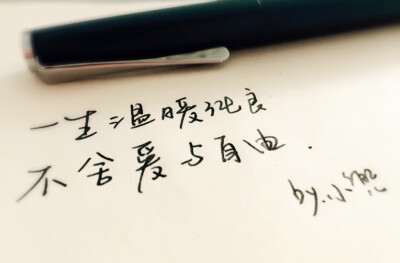 一生温暖纯良
不舍爱与自由.
by.小熊